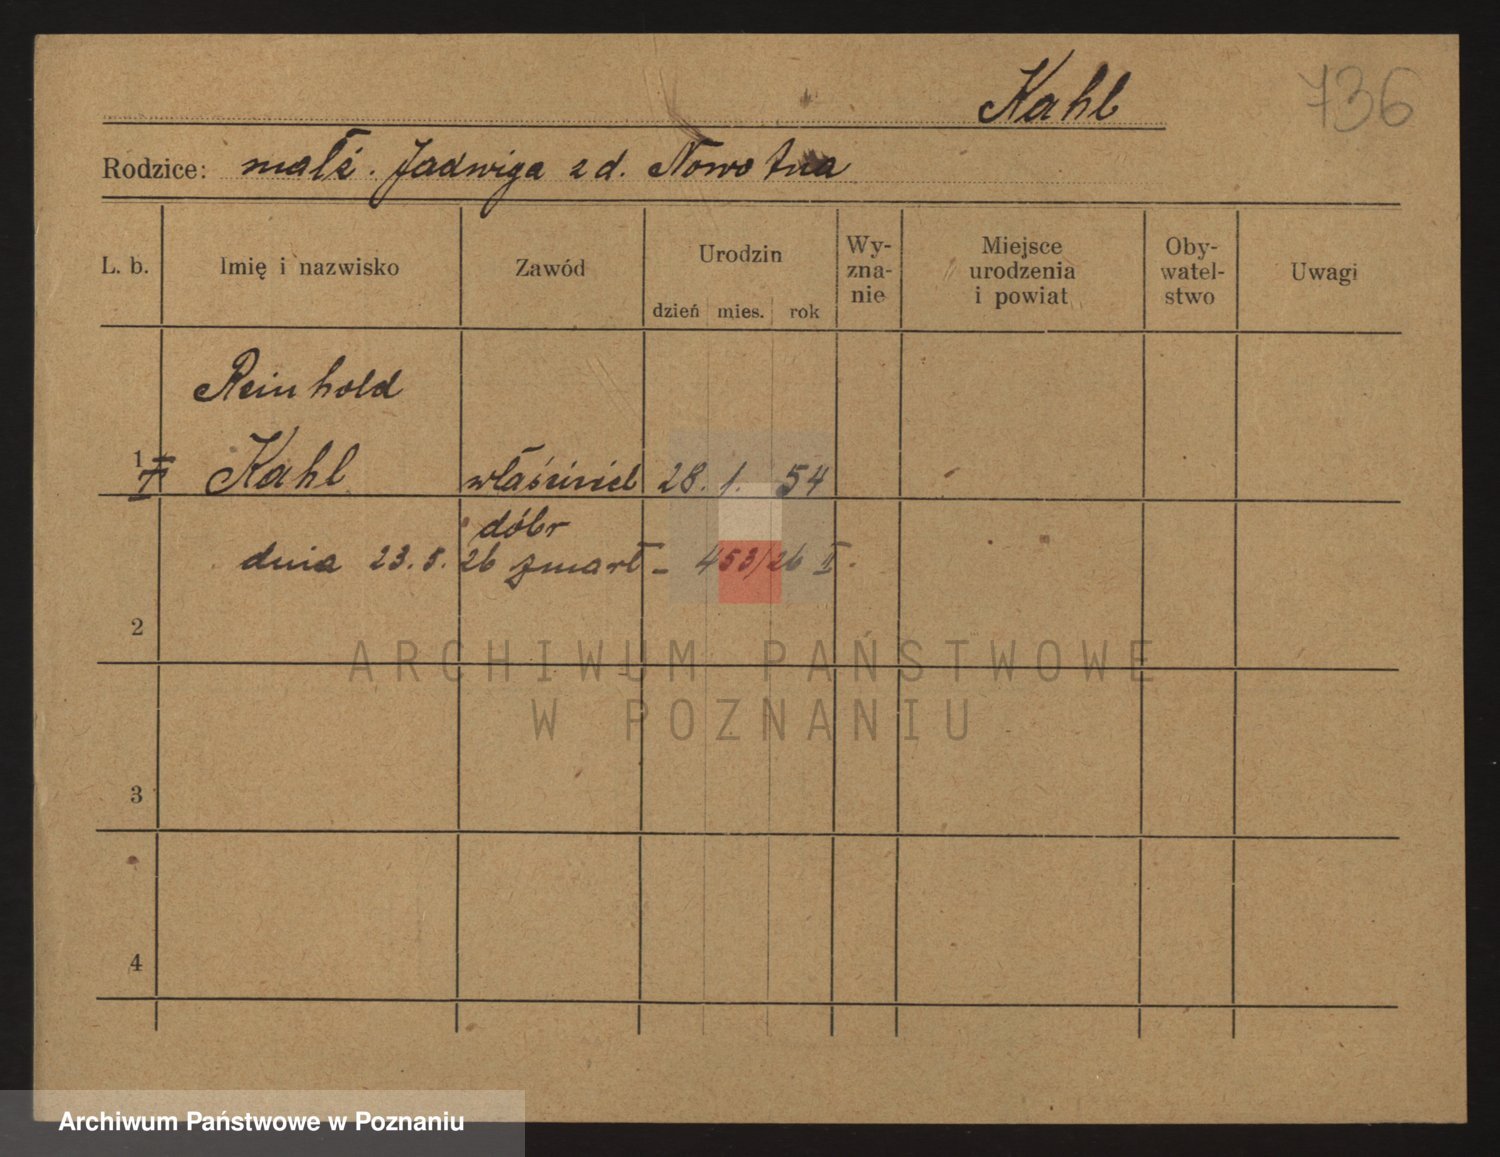 Kahl
736
Rodzice: małż. Jadwiga z d. Nowotna
L. b.
Imię i nazwisko
Zawód
Urodzin
dzień mies. rok
Wy-
zna-
nie
Miejsce
urodzenia
i powiat
Oby-
watel-
stwo
Uwagi
Reinhold
1 Kahl właściciel 28. 1. 54
dóbr
dnia 23. 5. 26 zmarł – 453/26 II.
2
3
4
ARCHIWUM PAŃSTWOWE
W POZNANIU
Archiwum Państwowe w Poznaniu